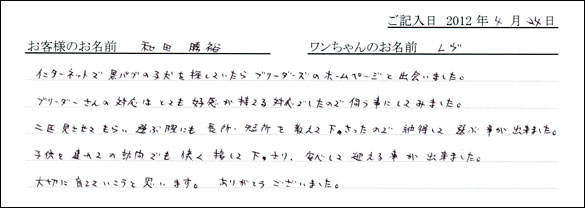 ご記入日 2012年 4月 24日
お客様のお名前 和田 勝裕 ワンちゃんのお名前 レヴ
インターネットで黒パグの子犬を探していたらブリーダーズのホームページと出会いました。
ブリーダーさんの対応はとても好感が持てる対応でしたので伺う事にしてみました。
二匹見させてもらい選ぶ際にも長所・短所を教えて下さったので納得して選ぶ事が出来ました。
子供を連れての訪問でも快く接して下さり、安心して迎える事が出来ました。
大切に育てていこうと思います。 ありがとうございました。